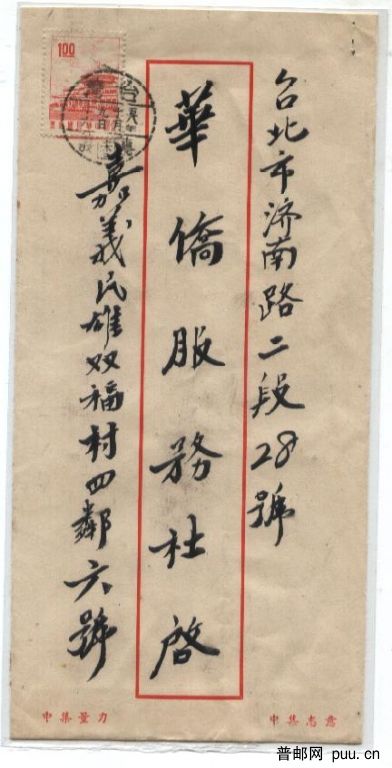 台北市济南路二段28號
華僑服務社啓
嘉義民雄双福村四鄰六號
1.00
台灣
中集志意
中集量力
普邮网 puu.cn